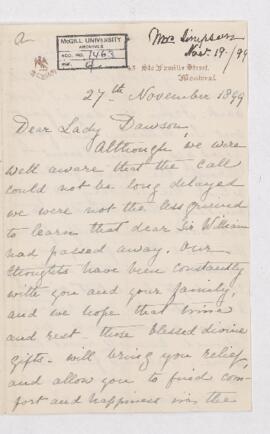 Mrs Simpson
Nov. 19/99
McGILL UNIVERSITY
ARCHIVES
ACC. NO. 1463
REF. 4
Ste Famille Street,
Montreal.
27th November 1899
Dear Lady Dawson,
Although we were
well aware that the call
could not be long delayed
we were not the less grieved
to learn that dear Sir William
had passed away. Our
thoughts have been constantly
with you and your family,
and we hope that time
and rest - those blessed divine
gifts - will bring you relief,
and allow you to find com-
fort and happiness in the